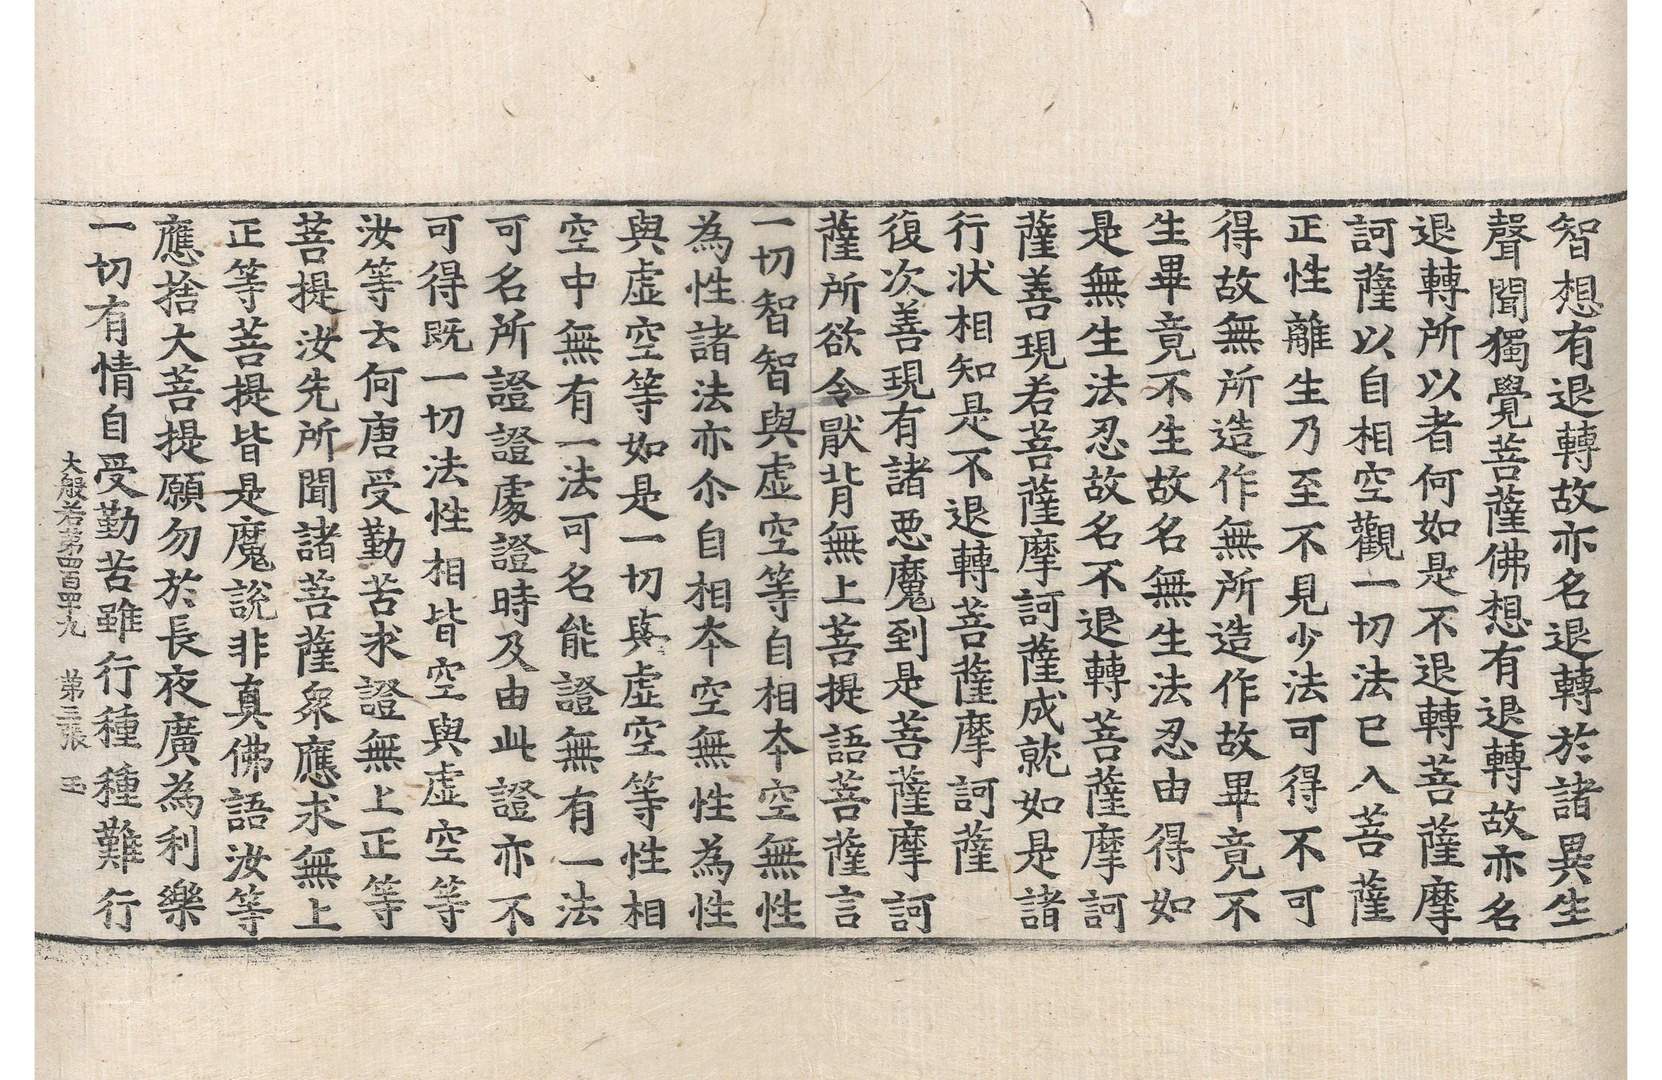 智想有退轉故亦名退轉於諸異生
聲聞獨覺菩薩佛想有退轉故亦名
退轉所以者何如是不退轉菩薩摩
訶薩以自相空觀一切法已入菩薩
正性離生乃至不見少法可得不可
得故無所造作無所造作故畢竟不
生畢竟不生故名無生法忍由得如
是無生法忍故名不退轉菩薩摩訶
薩善現若菩薩摩訶薩成就如是諸
行狀相知是不退轉菩薩摩訶薩
復次善現有諸惡魔到是菩薩摩訶
薩所欲令厭背無上菩提語菩薩言
一切智智與虛空等自相本空無性
為性諸法亦尒自相本空無性為性
與虛空等如是一切與虛空等性相
空中無有一法可名能證無有一法
可名所證證處證時及由此證亦不
可得既一切法性相皆空與虛空等
汝等云何唐受勤苦求證無上正等
菩提汝先所聞諸菩薩衆應求無上
正等菩提皆是魔說非真佛語汝等
應捨大菩提願勿於長夜廣為利樂
一切有情自受勤苦雖行種種難行
大般若第四百四十九 第三張 玉